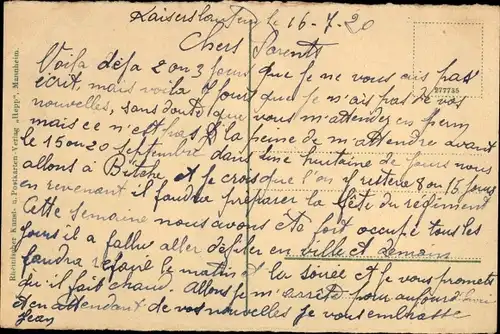 Kaiserslautern le 16-7-20
Chers Parents
Voila déja 2 ou 3 jours que je ne vous ais pas
écrit, mais voila 7 jours que je n'ais pas de vos
nouvelles, sans doute que vous m'attender en perm
mais ce n'est pas la peine de m'attendre avant
le 15 ou 20 septembre dans une huitaine de jours nous
allons à Bitche et je crois que l'on y restera 8 ou 15 jours
en revenant il faudra préparer la fête du régiment
Cette semaine nous avons été fort occupé tous les
jours il a fallu aller défiler en ville et demain
faudra refaire le matin et la soirée et je vous promets
qu'il fait chaud. Allons je m'arrête pour aujourd'hui
et en attendant de vos nouvelles je vous embrasse
Jean
277735
Rheinischer Kunst- u. Postkarten-Verlag „Hepp", Mannheim.